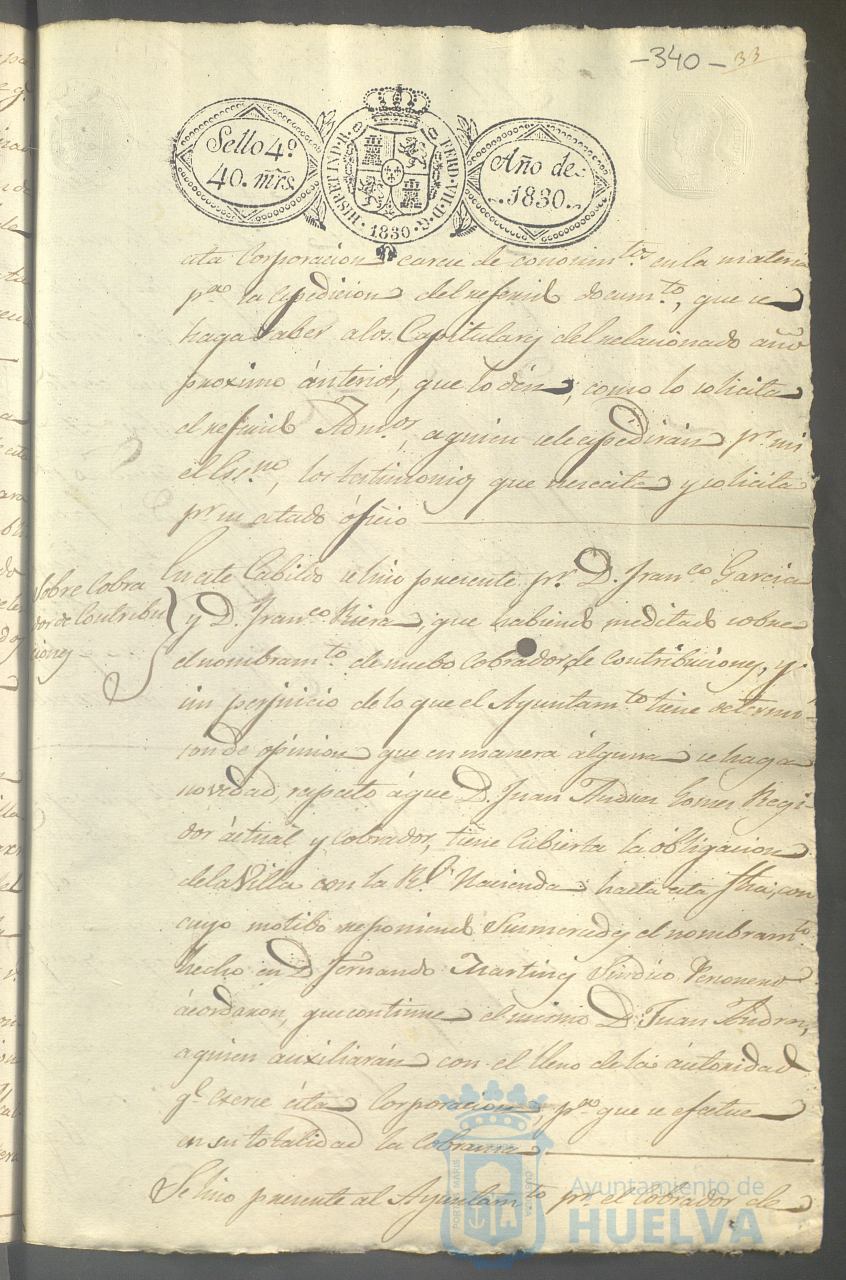 -340-
33
Sello 4º
40. mrs.
HISP. ET IND. R.
FERD. VII. D. G.
· 1830 ·
Año de
1830.
esta Corporacion carece de conocimtos en la materia
pra la espedicion del referido documto, que se
haga saber a los Capitulares del relacionado año
proximo ánterior, que lo dén, como lo solicita
el referido Admor, a quien se le espedirán pr mi
el Essno, los testimonios que necesita y solicita
pr su citado óficio
Sobre Cobra
dor de Contribu
ciones
En este Cabildo se hizo presente pr D. Franco Garcia
y D. Franco Riera, que habiendo meditado sobre
el nombramto de nuebo Cobrador de contribuciones, y
sin perjuicio de lo que el Ayuntamto tiene determi-
son de opinion que en manera álguna se haga
novedad, respecto á que D. Juan Andres Gomez Regi-
dor áctual y Cobrador, tiene Cubierta la óbligacion
de la Villa con la Rl. Hacienda hasta esta fha, con
cuyo motibo reponiendo Sus mercedes el nombramto
hecho en D Fernando Martinez Sindico Personero
ácordaron, que continue el mismo D. Juan Andres,
a quien auxiliarán con el lleno de la áutoridad
ql. exerce ésta Corporacion, pra que se efectue
en su totalidad la Cobranza
Se hizo presente al Ayuntamto pr el Cobrador de
PORTUS MARIS
CUSTODIA
Ayuntamiento de
HUELVA